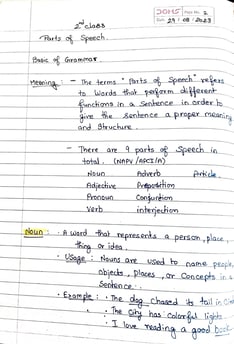 2nd class
Page No. 2
Date 29 / 08 / 2023
Parts of Speech.
Basic of Grammar
Meaning : - The terms "Parts of Speech" refers
to words that perform different
functions in a sentence in order to
give the sentence a proper meaning
and Structure.
- There are 9 parts of Speech in
total. (NAPV / APCI / A)
Noun Adverb Article
Adjective Preposition
Pronoun Conjunction
Verb interjection
Noun : . A word that represents a person, place,
thing or idea.
. Usage : Nouns are used to name people,
objects, places, or concepts in a
Sentence.
. Example : . The dog chased its tail in
. The City has colorful lights.
. I love reading a good book